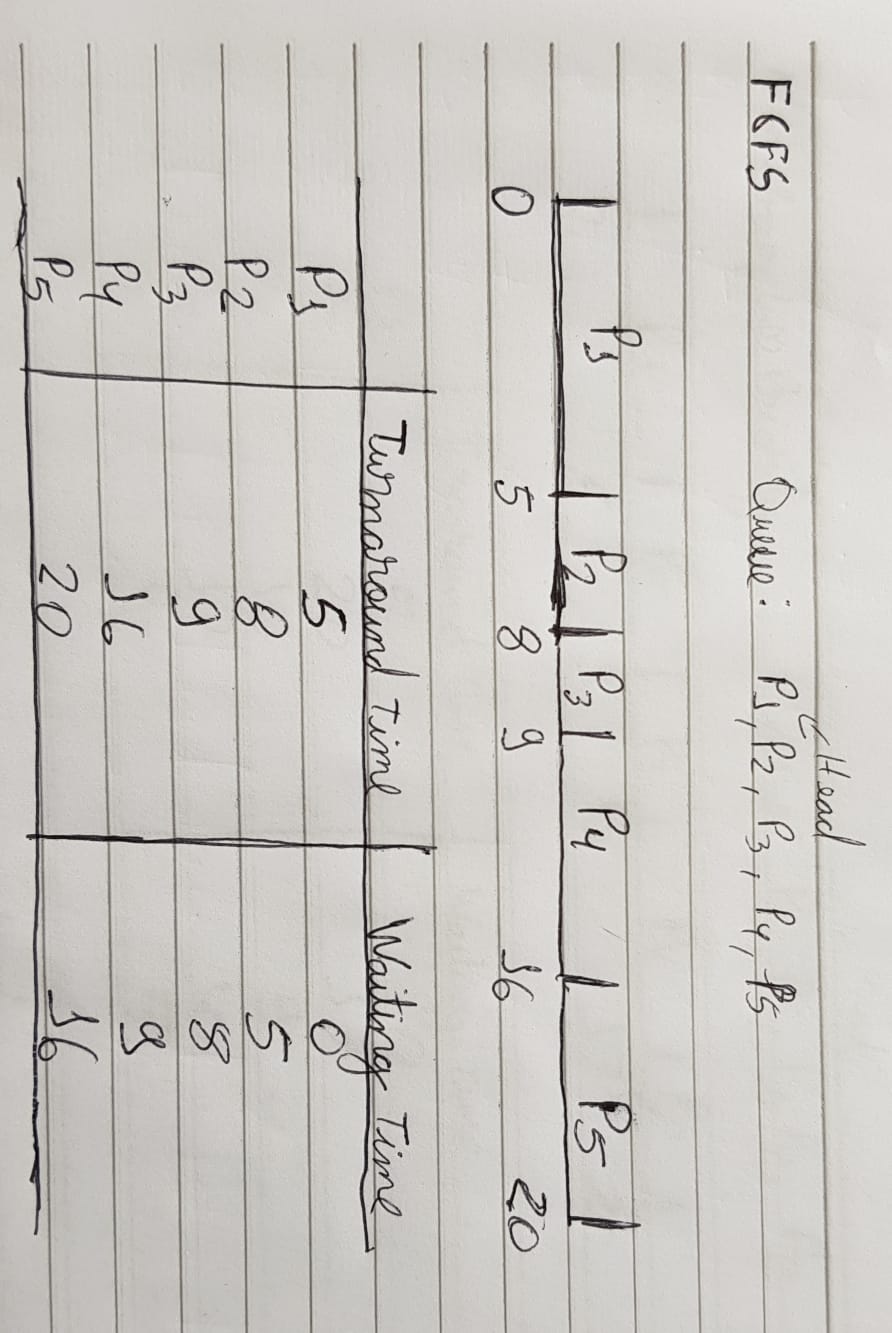 Head
FCFS Queue: P1, P2, P3, P4, P5
P1 P2 P3 P4 P5
0 5 8 9 16 20
Turnaround Time Waiting Time
P1 5 0
P2 8 5
P3 9 8
P4 16 9
P5 20 16